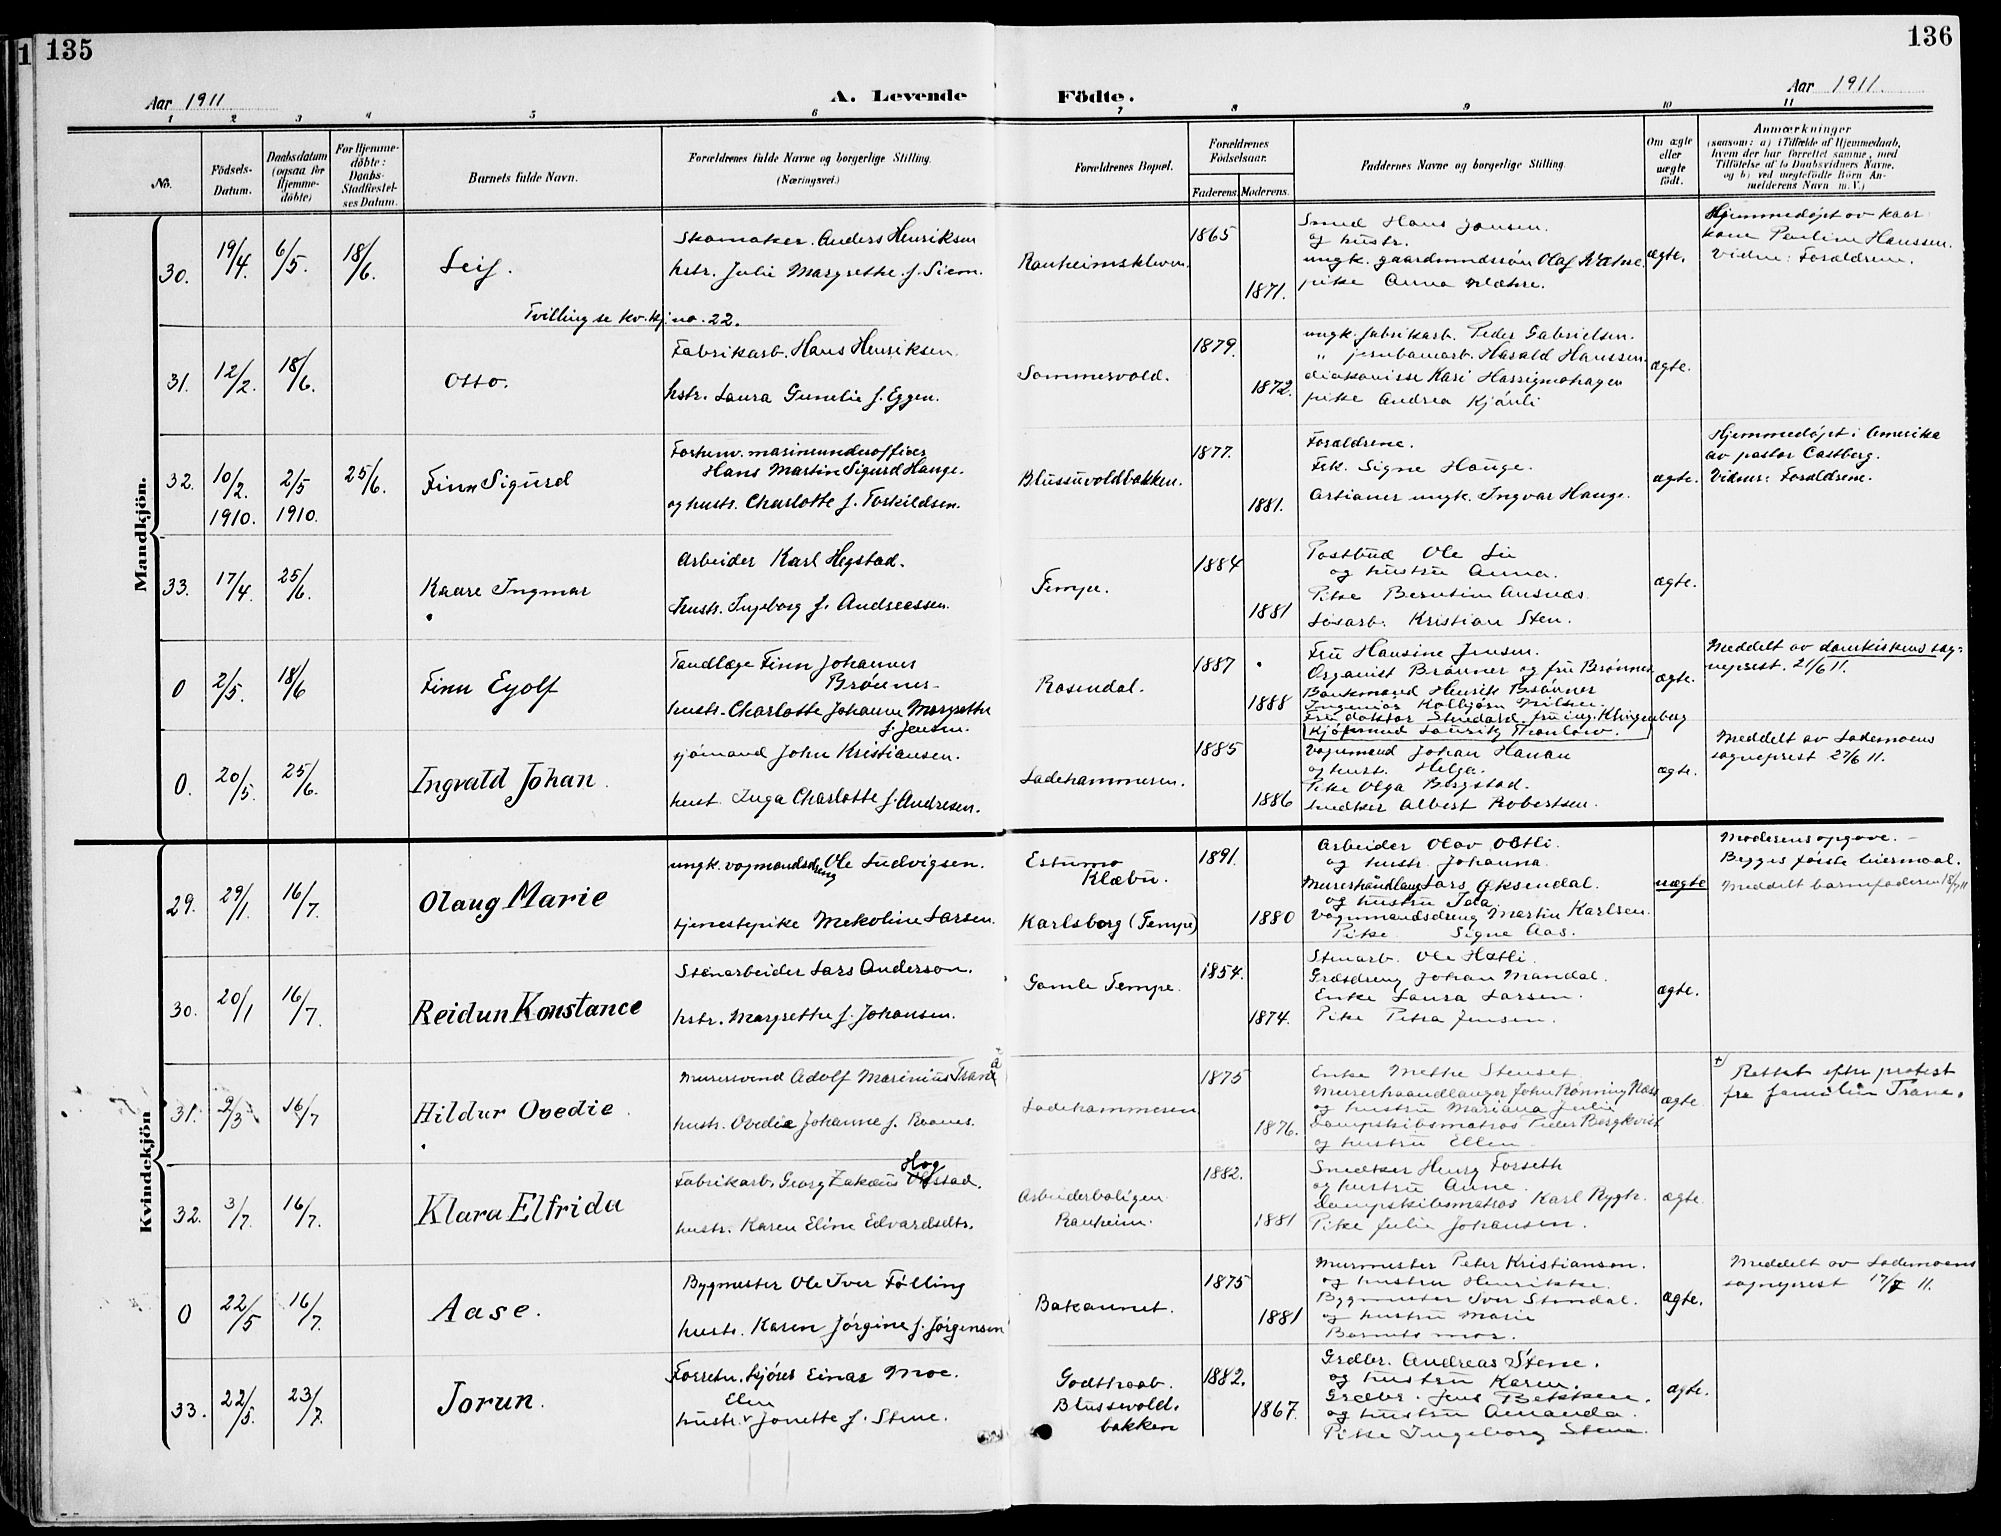 135
136
Aar 1911
A. Levende Fødte.
Aar 1911.
1 2 3 4 5 6 7 8 9 10 11
No.
Fødsels-Datum.
Daabsdatum (ogsaa for Hjemme-døbte)
For Hjemme-døbte: Daabs-Stadfæstel-ses Datum.
Barnets fulde Navn.
Forældrenes fulde Navne og borgerlige Stilling. (Næringsvei.)
Forældrenes Bopæl.
Forældrenes Fødselsaar.
Faderens. Moderens.
Faddernes Navne og borgerlige Stilling.
Om ægte eller uægte født.
Anmærkninger
(saasom: a) i Tilfælde af Hjemmedaab, hvem der har forrettet samme, med Tilføielse af to Daabsvidners Navne, og b) ved uegtefødte Børn An-melderens Navn m. V.)
Mandkjøn.
30. 19/4. 6/5. 18/6. Leif.
Skomaker. Anders Henriksen
hstr. Julie Margrethe f. Siem.
Tvilling se kv. kj. no. 22.
Ranheimskleven.
1865
1871.
Smed Hans Jansen.
og hustr.
ungk. gaardmandssøn Olaf Wætne.
pike Anna Wætne.
ægte.
Hjemmedøpt av kaar
kone Pauline Hanssen.
Vidne: Foraldrene.
31. 12/2. 18/6. Otto.
Fabrikarb. Hans Henriksen.
hstr. Laura Gunelie f. Eggen.
Sommervold.
1879.
1872.
ungk. fabrikarb. Peder Gabrielsen.
" jernbanearb. Harald Hanssen.
diakonisse Kari
pike Andrea Kjønli
ægte.
32. 10/2. 1910. 2/5 1910. 25/6. Finn Sigurd
Forhenv. marineunderofficer
Hans Martin Sigurd Hauge.
og hustr. Charlotte f. Torkildsen.
Blussuvoldbakken.
1877.
1881.
Foraldrene.
Frk. Signe Hauge.
Artianer ungk. Ingvar Hauge.
ægte.
Hjemmedøpt i Amerika
av pastor Castberg.
Vidner: Foraldrene.
33. 17/4. 25/6. Kaare Ingmar
Arbeider Karl Hegstad.
hustr. Ingeborg f. Andreassen.
Tempe.
1884
1881
Postbud Ole Lie
og hustru Anna.
Pike Berntine Ausnæs.
Løsarb. Kristian Sten.
ægte.
0 2/5. 18/6 Finn Eyolf
Tandlæge Finn Johannes
Brönner.
hustr. Charlotte Johanne Margrethe
f. Jensen.
Rosendal.
1887
1888
Fru Hansine Jensen.
Organist Brönner og fru Brönner
Bankmand Henrik Brönner
Ingeniør Kolbjørn Nilsen.
Fru doktor Stuedard. fru ing. Klingenberg
Kjøpmand Lauritz Thaulow.
ægte.
Meddelt av domkirkens sog=
neprest. 21/6 11.
0. 20/5. 25/6. Ingvald Johan.
sjømand John Kristiansen.
hust. Inga Charlotte f. Andresen.
Ladehammeren.
1885
1886
Vognmand Johan Hanan
og hust. Helga.
Pike Olga Bergstad.
Snedker Albert Robertsen.
ægte.
Meddelt av Lademoens
sogneprest 27/6 11.
Kvindekjön
29. 29/1. 16/7. Olaug Marie
ungk. vogmandsdreng Ole Ludvigsen.
tjenestepike Mekoline Larsen.
Estumo
Klæbu.
Karlsborg (Tempe)
1891.
1880
Arbeider Olav Oltli.
og hustr. Johanna.
Murerhåndlang Lars Øksendal.
og hustru Ida.
Vognmandsdreng Martin Karlsen.
Pike Signe Aas.
uægte
Moderens opgave. —
Begges første leiermaal.
Meddelt barnefaderen 18/7 11
30. 20/1 16/7. Reidun Konstance
Stenarbeider Lars Anderson.
hstr. Margrethe f. Johansen.
Gamle Tempe.
1854.
1874.
Stenarb. Ole Hætli.
Græsdreng Johan Mandal.
Enke Laura Larsen.
Pike Petra Jensen.
ægte.
31. 9/3 16/7 Hildur Ovedie.
Murersvend Adolf Marinius Trane
hustr. Ovedie Johanne f. Roanes.
Ladehammeren
1875
1876.
Enke Mette Stenset.
Murerhaandlanger John Rønning Næss
og hustru Mariana Julie
Dampskibsmatros Peder Bergkvist
og hustru Ellen.
ægte.
+) Rettet efter protest
fra familien Trane.
32. 3/7. 16/7. Klara Elfrida
Fabrikarb. Georg Zakæus Hogstad.
hustr. Karen Eline Edvardsdtr.
Arbeiderboligen
Ranheim.
1882.
1881
Snedker Henrg Forseth
og hustru Anne.
Dampskibsmatros Karl Rygh.
Pike Julie Johansen.
ægte.
0 22/5 16/7. Aase.
Bygmester Ole Iver Følling
hustr. Karen Jørgine f. Jørgensen
Bakaunet.
1875
1881
Murmester Peter Kristiansen.
og hustru Henrikke.
Bygmester Iver Stendal.
og hustru Marie
Barnets mor.
ægte.
Meddelt av Lademoens
sogneprest 17/7 11.
33. 22/5. 23/7. Jorun.
Forretn. kjører Einar Moe.
Elen
hustr. v Jonette f. Stene.
Godthaab.
Blussevolds
bakken
1882.
1867.
Grdbr. Andreas Stene.
og hustru Karen.
Grdbr. Jens Bekken.
og hustru Amanda.
Pike Ingeborg Stene.
ægte.